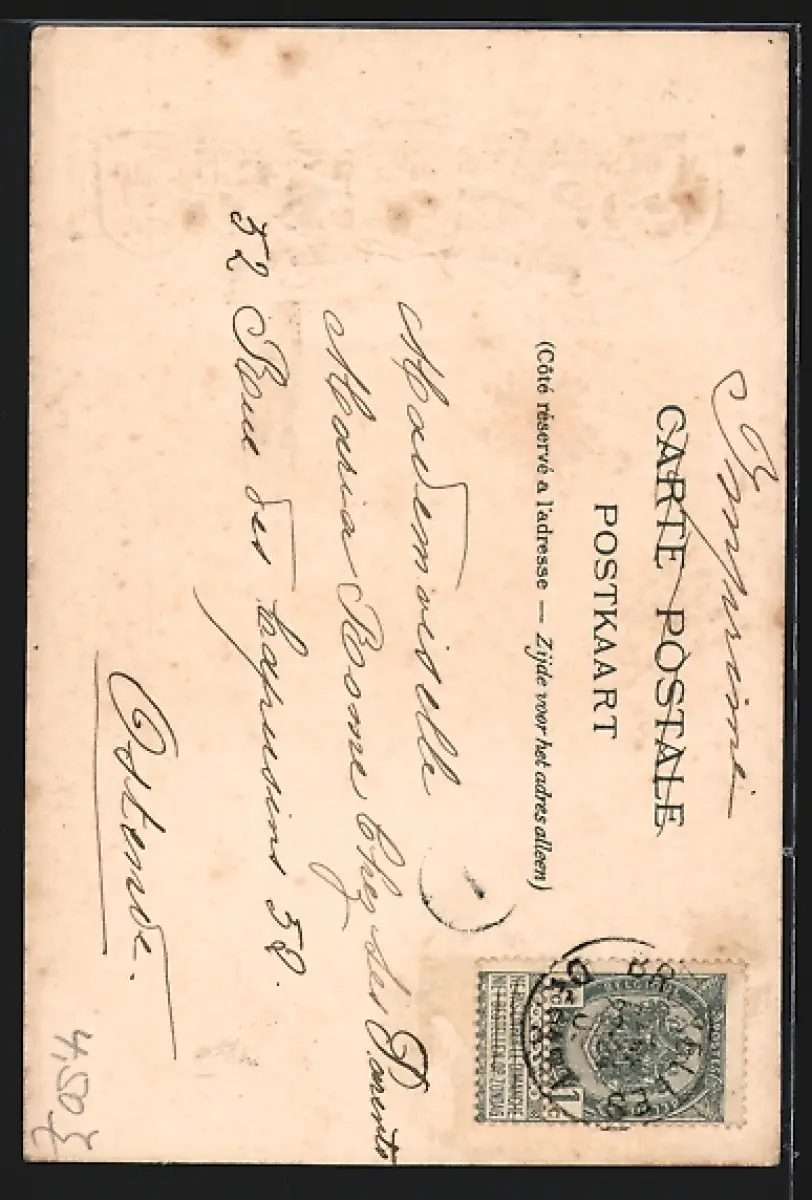 Imprimé
CARTE POSTALE
POSTKAART
(Côté réservé a l'adresse — Zijde voor het adres alleen)
Mademoiselle
Maria Rome Chez ses Parents
52 Rue des Capucins 52.
Ostende.
NE PAS LIVRER LE DIMANCHE
NIET BESTELLEN OP ZONDAG
1
4,50